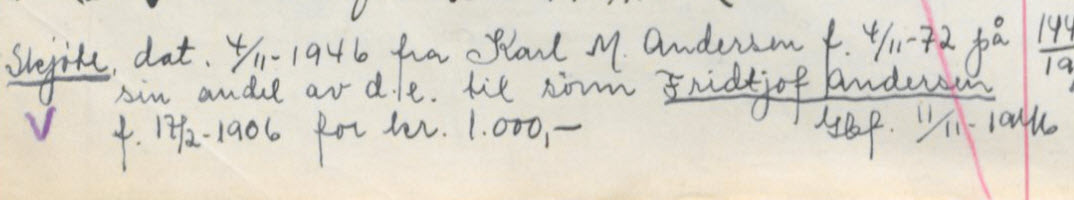 Skjøte, dat. 4/11-1946 fra Karl M. Andersen f. 4/11-72 på
sin andel av d.e. til sønn Fridtjof Andersen
f. 17/2-1906 for kr. 1.000,- tgbf. 11/11-1946
144
19